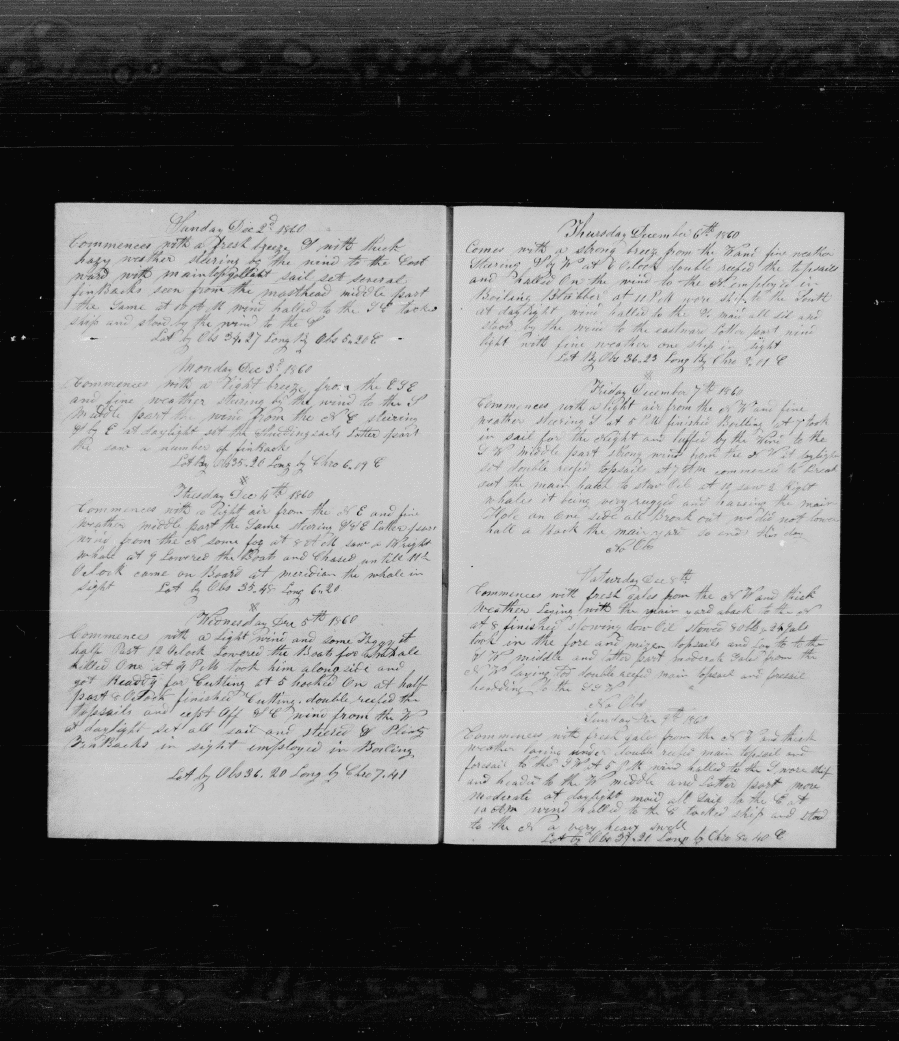 Sunday Dec 2d 1860
Commences with a fresh breeze S with thick
hazy weather steering by the wind to the East
ward with maintopgallant sail set several
finBacks seen from the masthead middle part
the Same at 10 A M wind halled to the S E tack
ship and stood by the wind to the S
Lat by Obs 34,27 Long By Obs 5.20 E
Monday Dec 3d 1860
Commences with a light breeze from the E S E
and fine weather stering by the wind to the S
middle part the wind from the N E steiring
S by E at daylight set the studingsails Latter part
the saw a number of finback
Lat By Obs 35.20 Long by Chro 6.09 E
Tuesday Dec 4th 1860
Commences with a light air from the N E and fine
weather middle part the Same stering latter part
wind from the N some fog at 8 saw a Wright
whale at 9 Lowered the Boat and Chased untill 11
Oclock came on Board at meridian the whale in
sight Lat by Obs 35.48 Long 6.20
Wednesday Dec 5th 1860
Commences with a Light wind and some Foggy at
half Past 12 Oclock Lowered the Boats for whale
killed One at 4 P M took him alongside and
got Readdy for Cutting at 5 hooked On at half
past 8 Oclock finished Cutting. double reefed the
topsails and cept Off S E wind from the W
at daylight set all sail and steered S Plenty
FinBacks in sight employed in Boiling
Lat by Obs 36.20 Long by Chro 7.41
Thursday December 6th 1860
Comes with a strong breeze from the W and fine weather
Steering S by W at 6 Oclock double reefed the topsails
and halled On the wind to the N employed in
Boiling Blubber at 11 P M wore ship to the South
at daylight wind halled to the S maid all sil and
stood by the wind to the eastward latter part wind
light with fine weather one ship in sight
Lat By Obs 36.23 Long By Chro 9.01 E
Friday December 7th 1860
Commences with a light air from the N W and fine
weather steering S at 5 P M finished Boiling at 7 took
in sail for the Night and luffed by the Wind to the
S W middle part strong wind from the N W at daylight
set double reefed topsails at 7 Am commenced to Break
out the main hatch to stow Oil at 11 saw 2 Right
whales it being very rugged and haveing the main
Hole on One side all Broak out we did not lower
hall a Back the main yard so ends this day
No Obs
Saturday Dec 8th
Commences with fresh gales from the N W and thick
weather Laying with the main yard aback to the N
at 8 finished stowing dow Oil stowed 80 bbls 24 gals
took in the fore and mizen topsails and to the
S W middle and latter part moderate Gale from the
N W laying to double reefed main topsail and forsail
headding to the S S W
No Obs
Sunday Dec 9th 1860
Commences with fresh gale from the N W and thick
weather laying under double reefed main topsail and
forsail to the S W at 5 P M wind halled to the S wore ship
and headed to the W middle and Latter part more
moderate at daylight maid all Sail to the E at
10 AM wind halled to the E tacked ship and stood
to the N a very heavy swell
Lat by Obs 37.21 Long by Chro 8.40 E